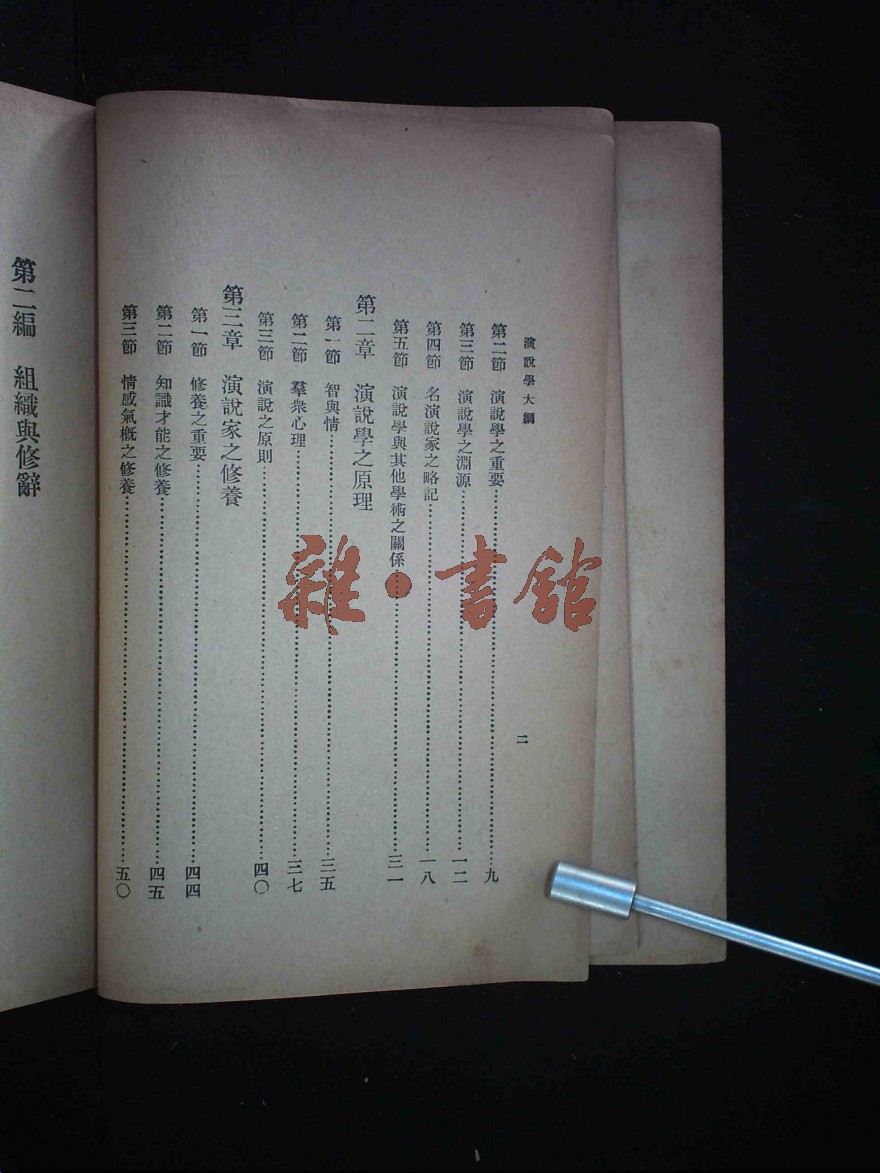 演說學大綱
二
第二節　演說學之重要……九
第三節　演說學之淵源……一二
第四節　名演說家之略記……一八
第五節　演說學與其他學術之關係……三一
第二章　演說學之原理
第一節　智與情……三五
第二節　羣衆心理……三七
第三節　演說之原則……四〇
第三章　演說家之修養
第一節　修養之重要……四四
第二節　知識才能之修養……四五
第三節　情感氣概之修養……五〇
第二編　組織與修辭
雜·書館